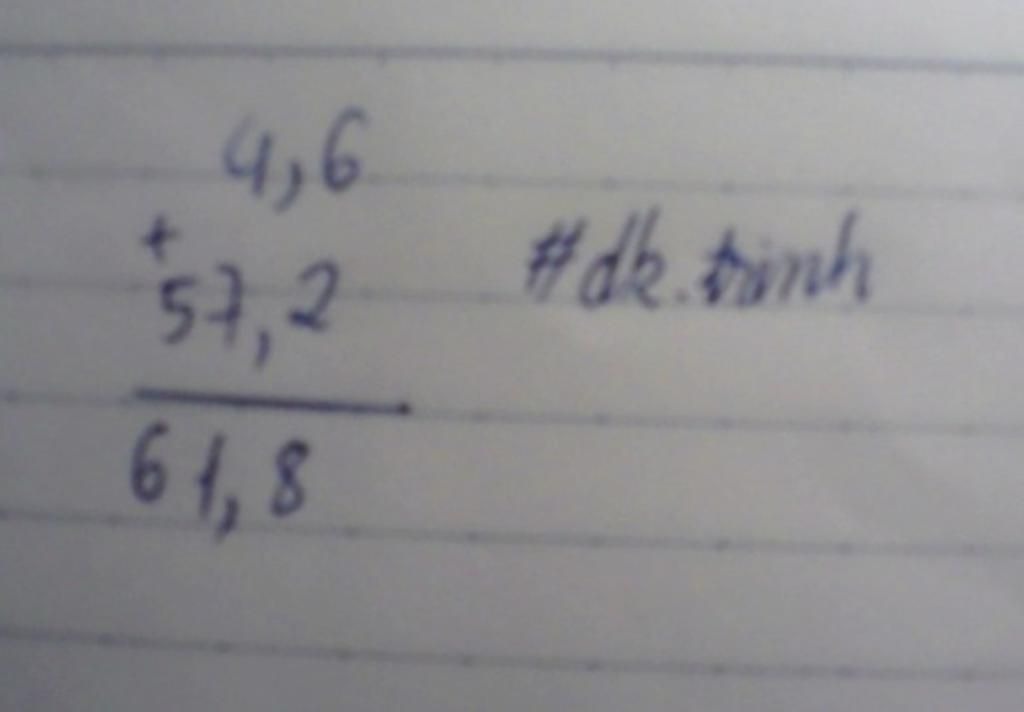 4,6
+
57,2
61,8
#dk.trinh